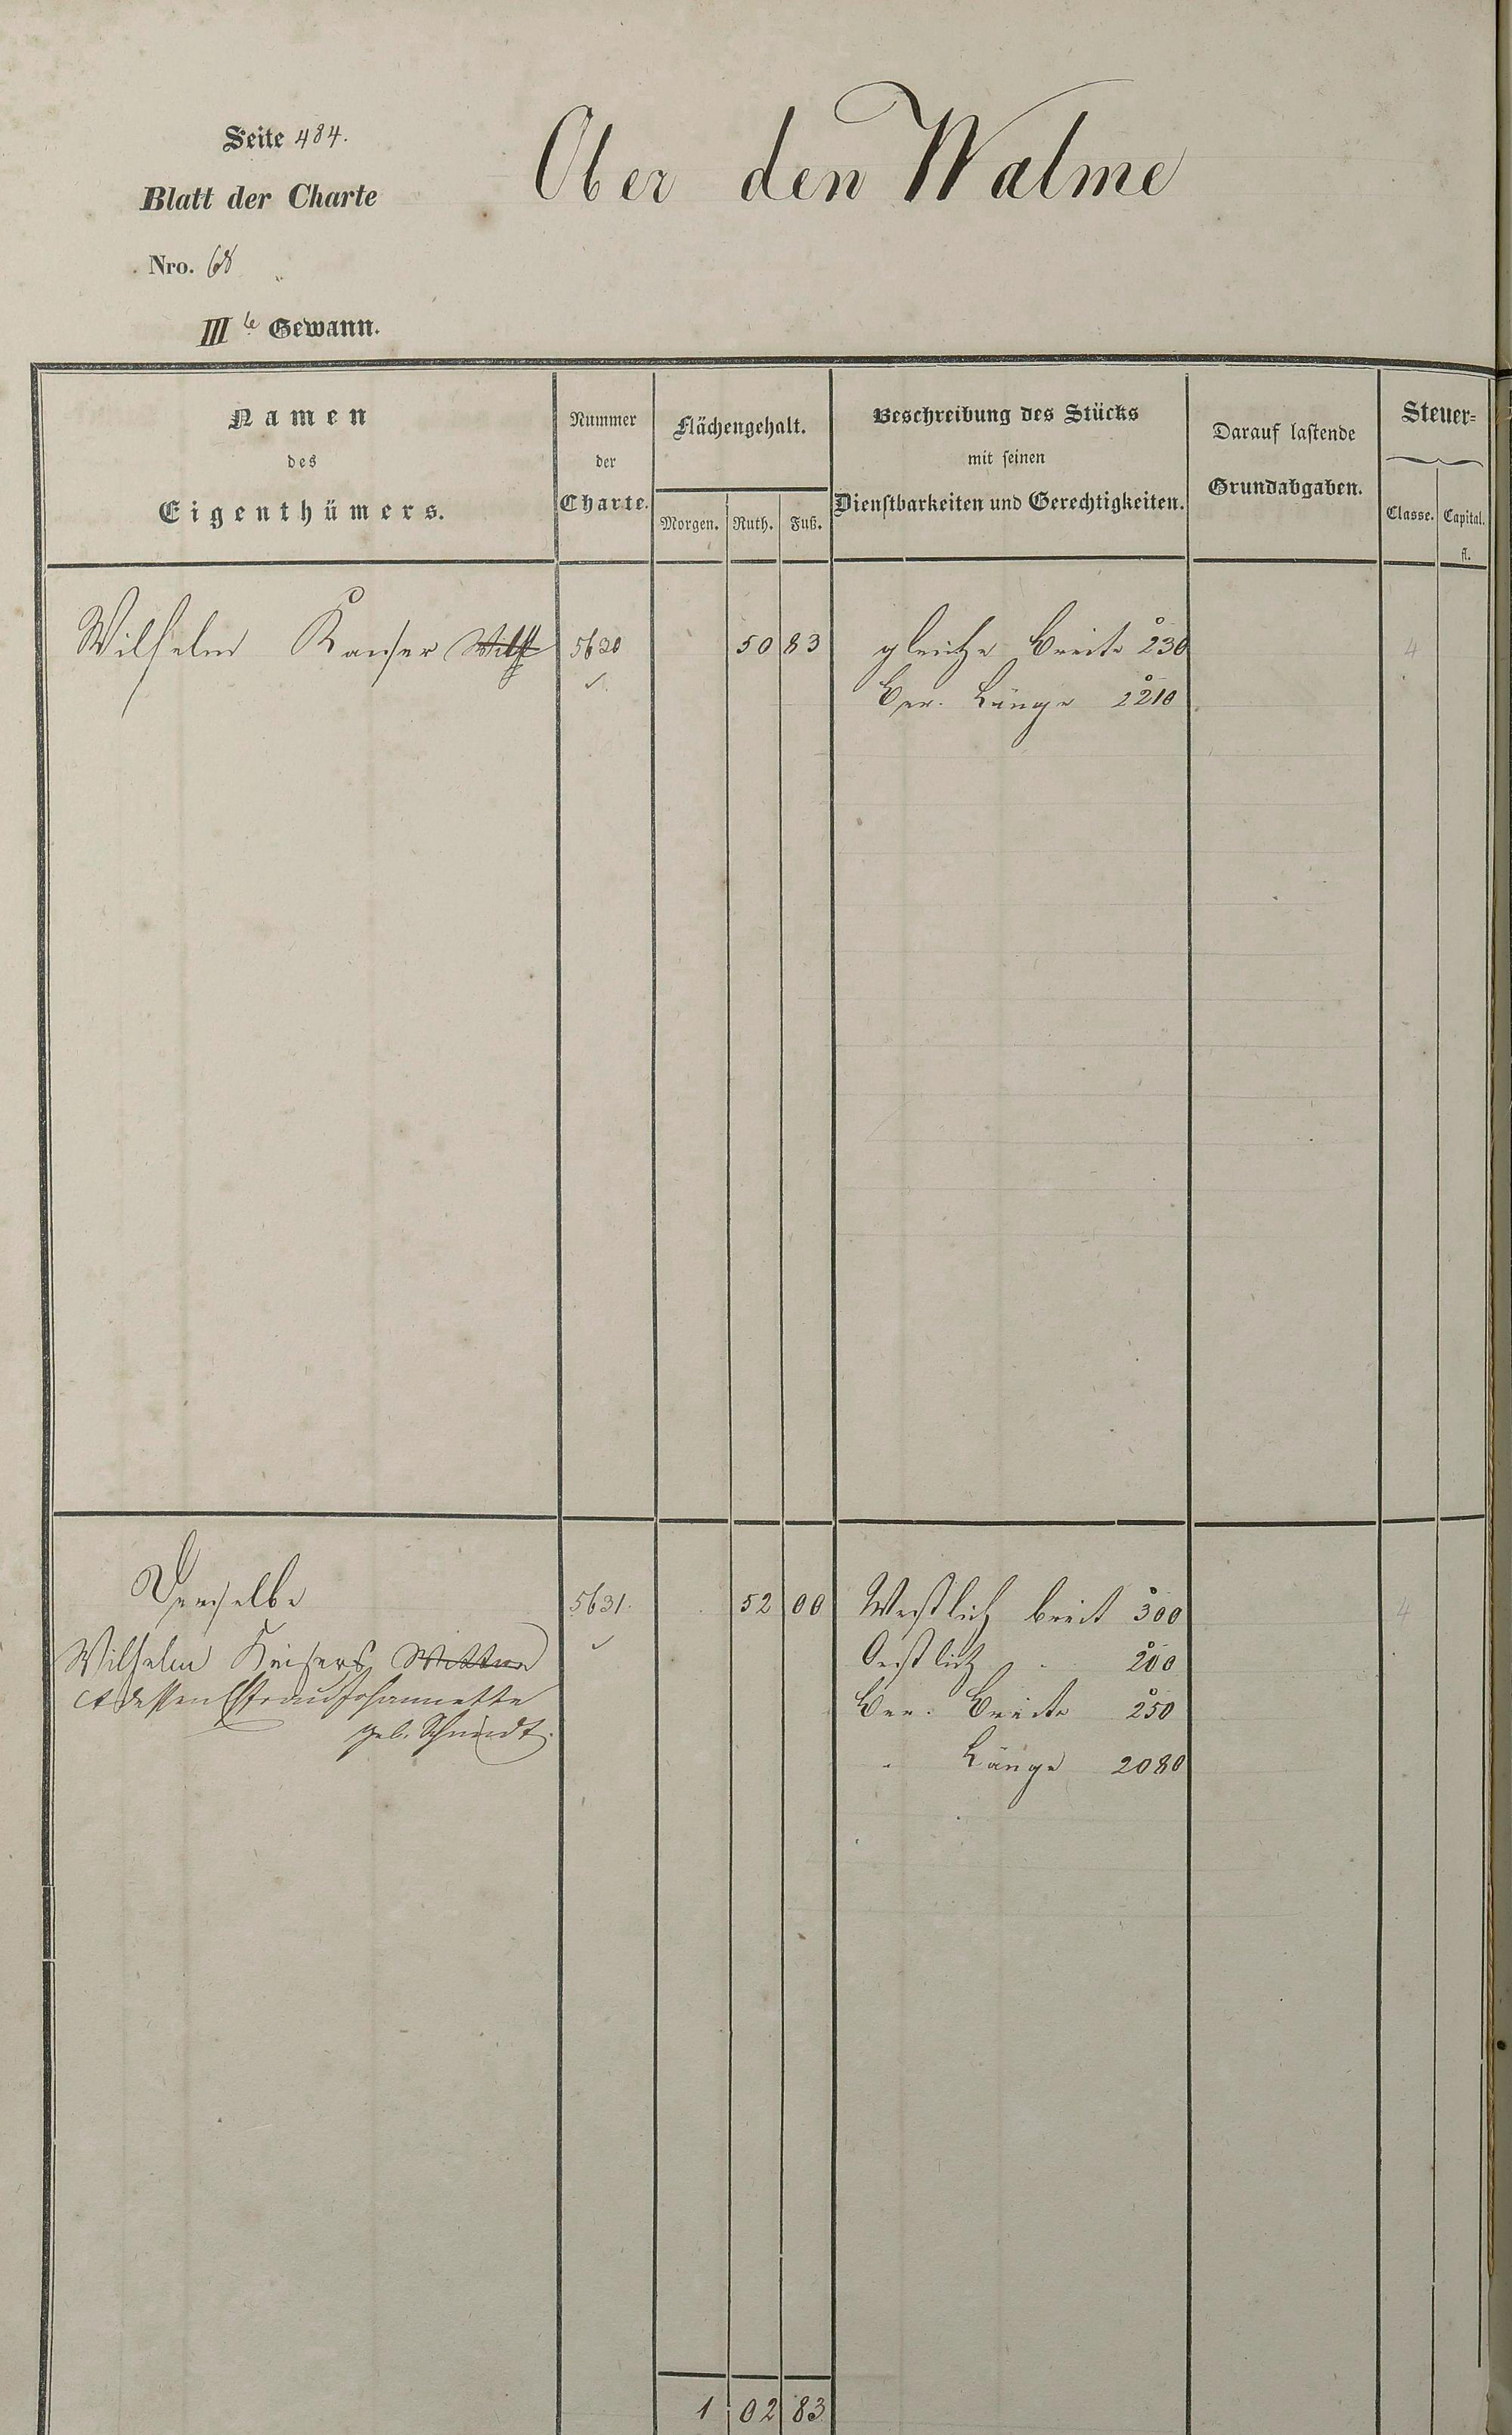 Seite 484.
Ober den Walme
Blatt der Charte
Nro. 68
III te Gewann.
Namen
des
Eigenthümers.
Nummer
der
Charte.
Flächengehalt.
Morgen. Ruth. Fuß.
Beschreibung des Stücks
mit seinen
Dienstbarkeiten und Gerechtigkeiten.
Darauf lastende
Grundabgaben.
Steuer-
Classe. Capital.
fl.
Wilhelm 5630 50 83 gleiche Breite 230 4
Ber. Länge 2210
Derselbe 5631. 52 00 Westlich breit 300 4
Wilhelm Keisers Oestlich 200
et dessen Ehefrau Johannette Ber. Breite 250
geb. Schmidt.
" Länge 2080
1 02 83